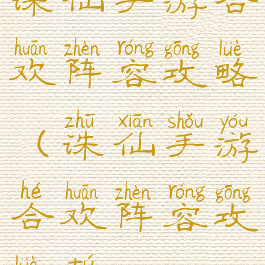 诛仙手游合
huān zhèn róng gōng lüè
欢阵容攻略
zhū xiān shǒu yóu
（诛仙手游
hé huān zhèn róng gōng
合欢阵容攻